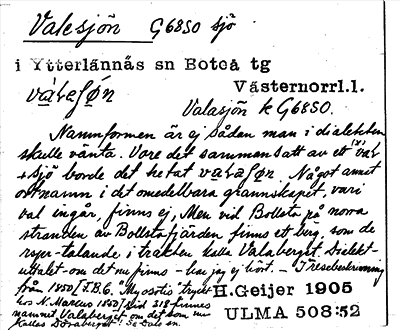 Valesjön G6850 sjö
i Ytterlännäs sn Boteå tg
Västernorrl.l.
Valasjön k G6850.
Namnformen är ej sådan man i dialekten
skulle vänta. Vore det sammansatt av ett
+ sjö borde det hetat Något annat
ortnamn i det omedelbara grannskapet, vari
val ingår, finns ej. Men vid Bollsta på norra
stranden av Bollstafjärden finns ett berg, som de
talande i trakten kalla Valaberget. Dialekt-
uttalet om det nu finns – har jag ej hört. – I resebeskrivning
från 1850
hos N. Marcus 1850) sid 318 finnes
namnet Valaberget om det som nu
kallas
H.Geijer 1905
ULMA 508:52